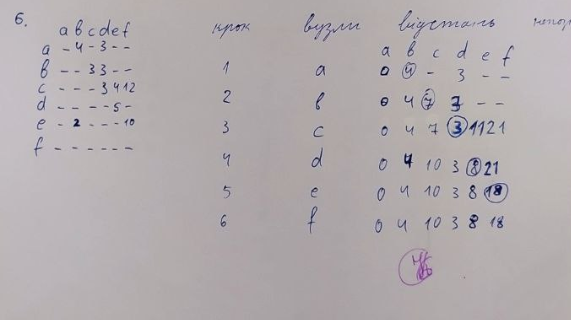 6.
a b c d e f
a - 4 - 3 - -
b - - 3 3 - -
c - - - 3 4 12
d - - - - 5 -
e - 2 - - - 10
f - - - - - -
крок вузли відстань
a b c d e f
1 a 0 4 - 3 - -
2 b 0 4 7 3 - -
3 c 0 4 7 3 11 21
4 d 0 4 10 3 8 21
5 e 0 4 10 3 8 18
6 f 0 4 10 3 8 18